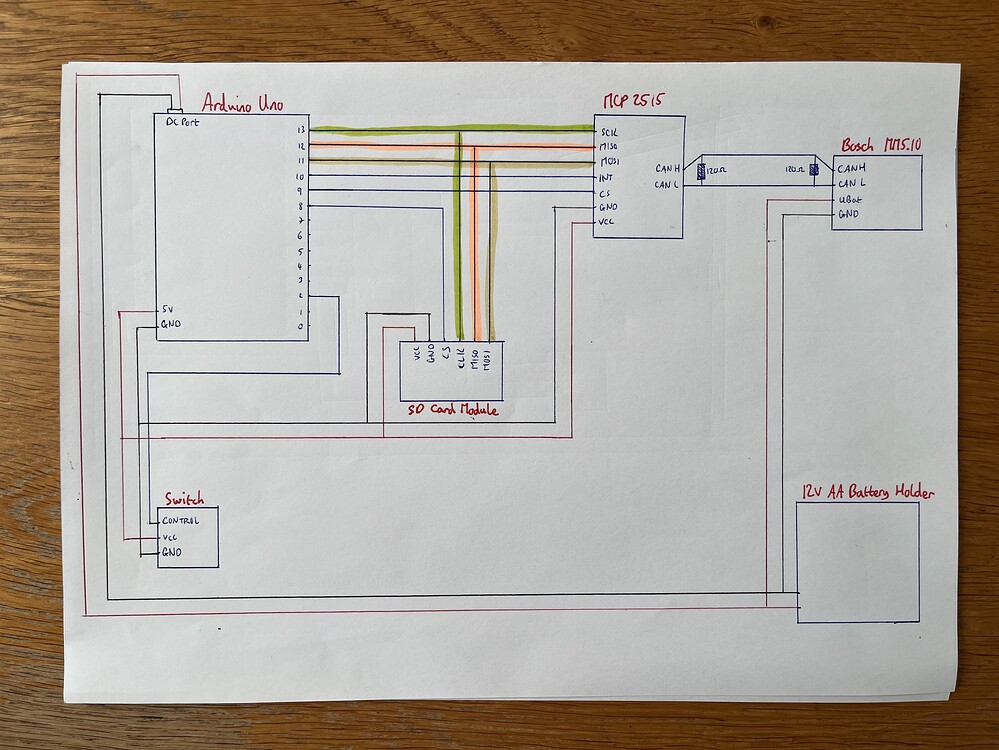 Arduino Uno
DC Port
13
12
11
10
9
8
7
6
5
4
3
2
1
0
5V
GND
MCP 2515
SCK
MISO
MOSI
INT
CS
GND
VCC
CAN H
CAN L
120Ω
120Ω
Bosch MM5.10
CAN H
CAN L
UBat
GND
VCC
GND
CS
CLK
MISO
MOSI
SD Card Module
Switch
CONTROL
VCC
GND
12V AA Battery Holder